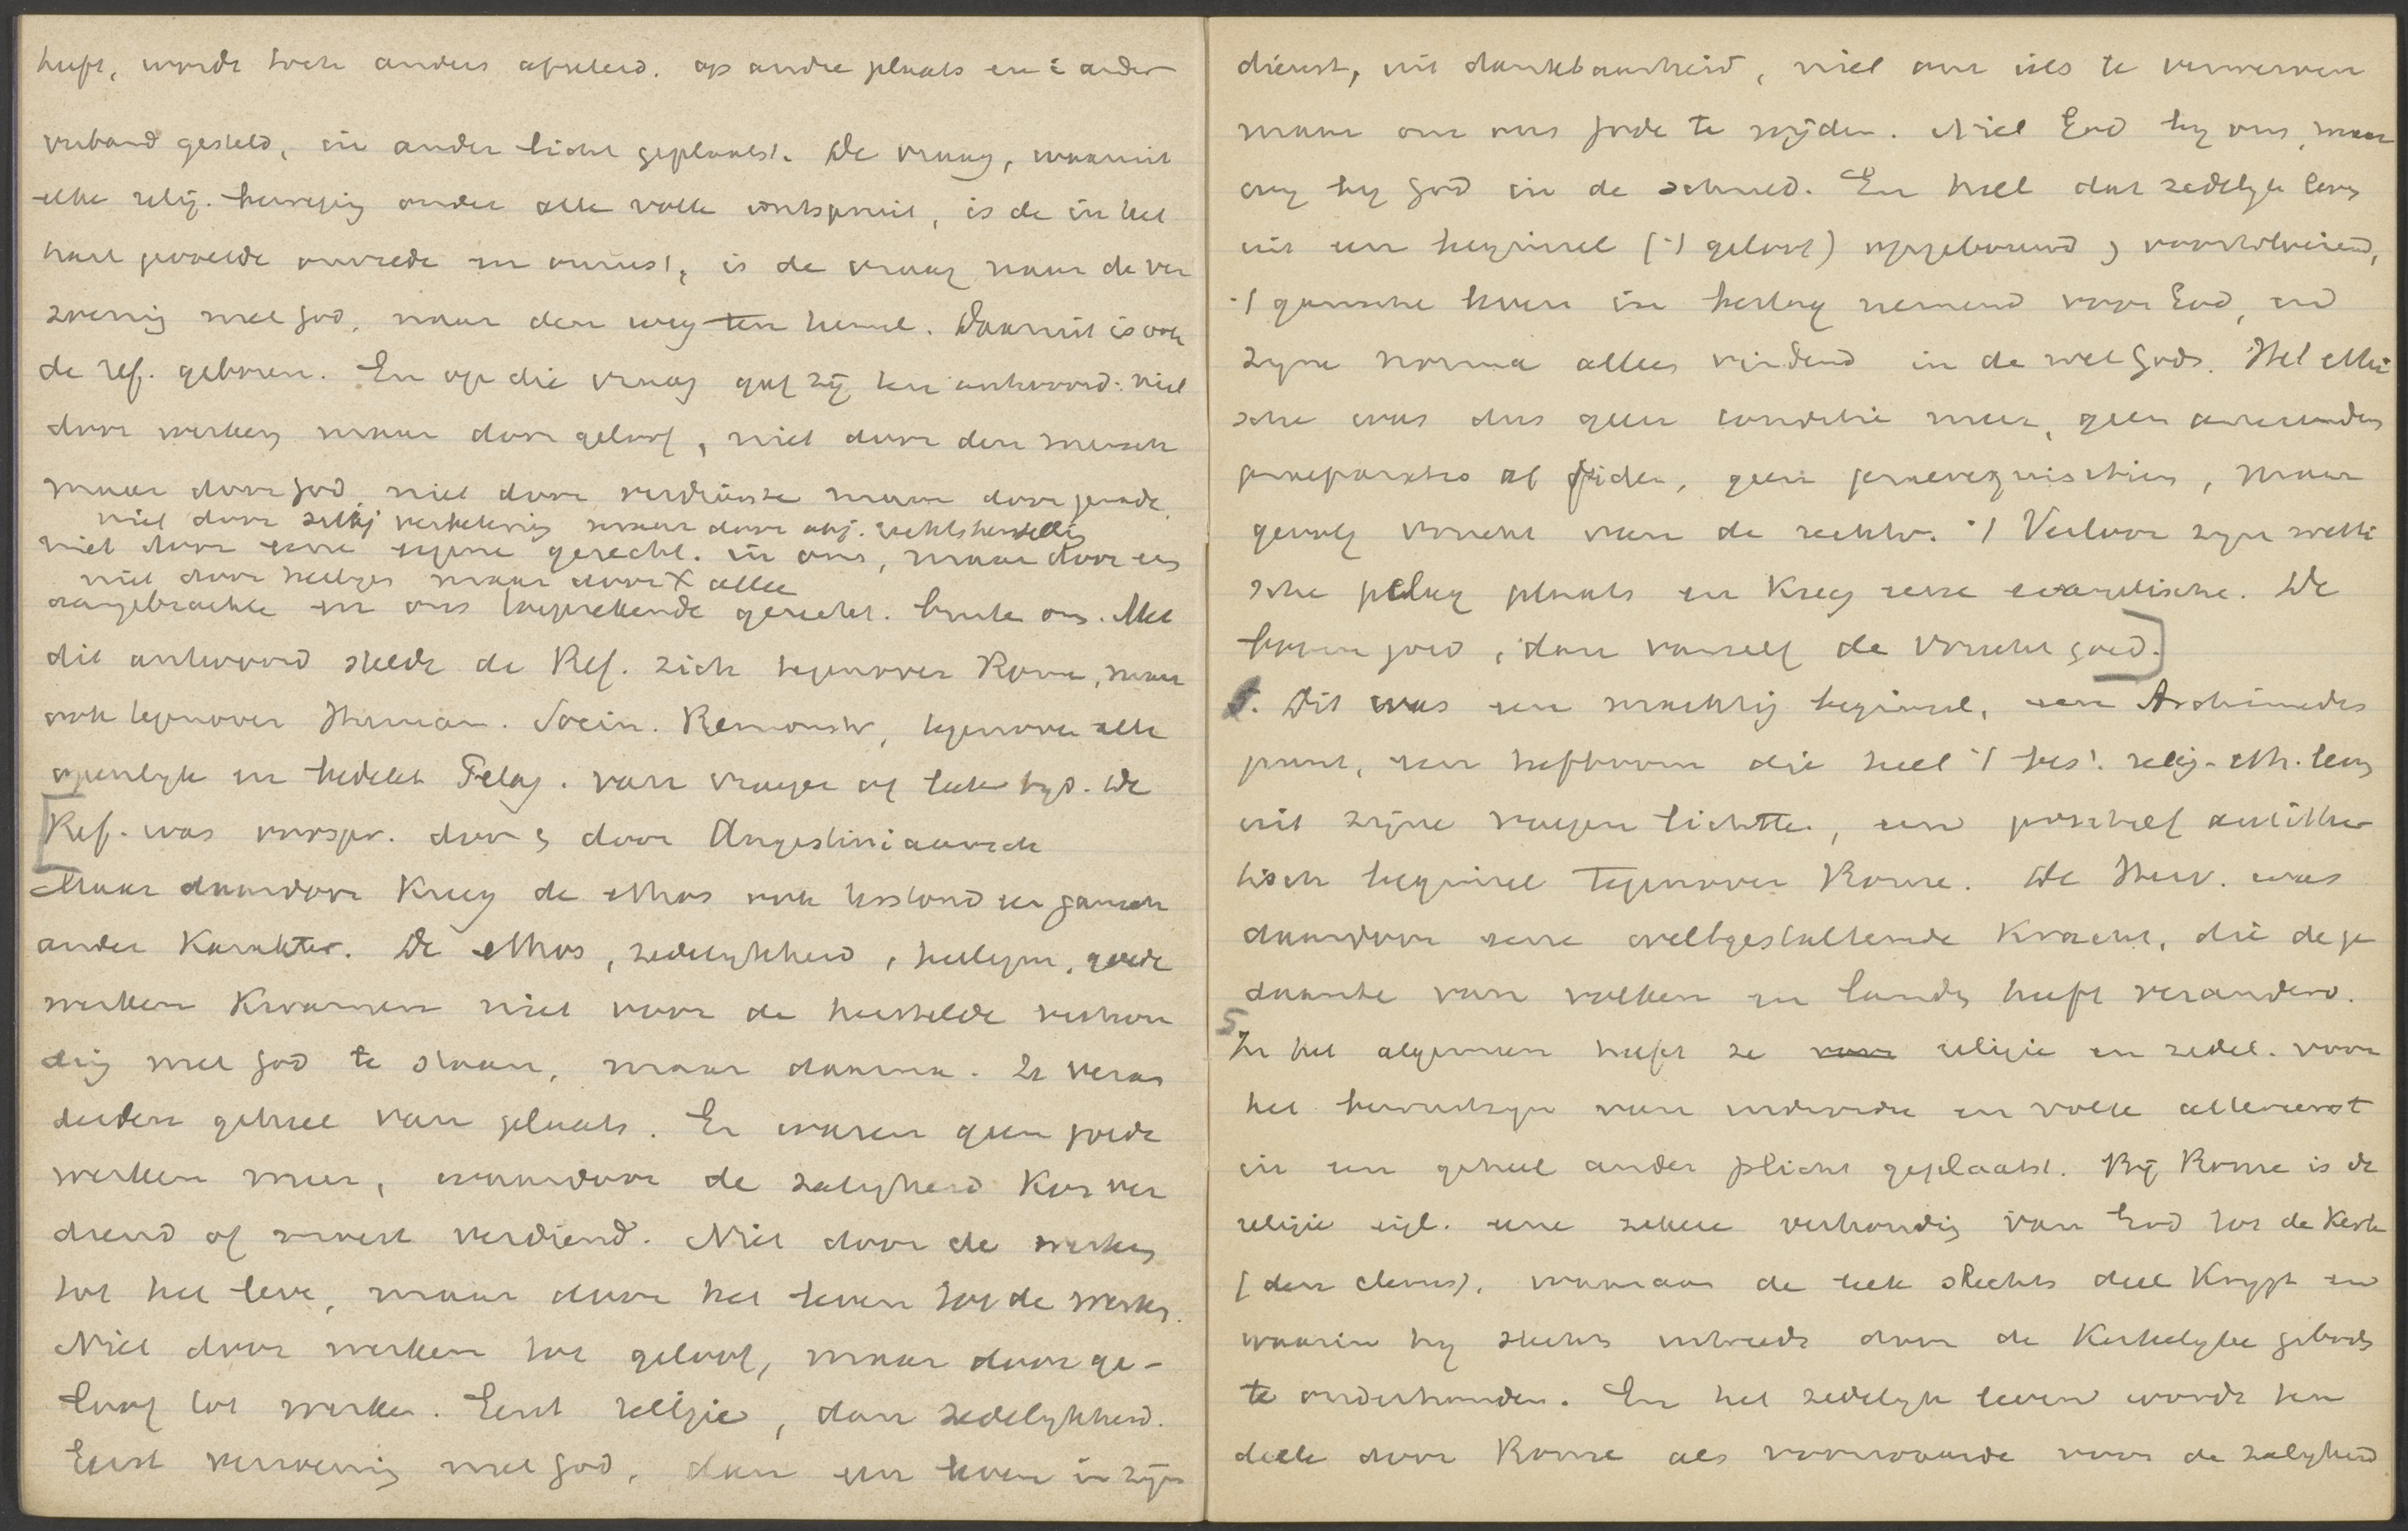 heeft, wordt toch anders afgeleid. op andre plaats en i ander
verband gesteld, in ander licht geplaatst. De vraag, waaruit
elke relig. beweging onder alle volk ontspruit, is de in het
hart gevoelde onvrede en onrust, is de vraag naar de ver
zoening met God, naar den weg ten hemel. Daaruit is ook
de ref. geboren. En op die vraag gaf zij ten antwoord: niet
door werken maar door geloof, niet door den mensch
maar door God, niet door verdienste maar door genade.
niet door zedelij verbetering maar door obj. rechtsherstellg
niet door eene eigene gerecht. in ons, maar door een
niet door heiliges maar door X allee
aangebrachte en ons toegerekende gerecht. buiten ons. Met
dit antwoord stelde de Ref. zich tegenover Rome, maar
ook tegenover Human. Socin. Remonstr, tegenover alle
openlyk en bedekt Pelag. van vroeger of later tyd. De
Ref. was oorspr. door & door Augustiniaansch
Maar daardoor kreeg de ethos ook terstond een gansch
ander karakter. De ethos, zedelykheid, heiligm, goede
werken kwamen niet voor de herstelde verhou
ding met God te staan, maar daarna. Ze veran
derden geheel van plaats. Er waren geen goede
werken meer, waardoor de zaligheid kon ver
diend of moest verdiend. Niet door de werken
tot het leve, maar door het leven tot de werken.
Niet door werken tot geloof, maar door ge-
loof tot werken. Eerst religie, dan zedelykheid.
Eerst verzoening met God, dan een leven in zijn
dienst, uit dankbaarheid, niet om iets te verwerven
maar om ons Gode te wijden. Niet God by ons, maar
wy by God in de schuld. En heel dat zedelyk leven
uit een beginsel ('t geloof) opgebouwd & voortvloeiend,
't gansche leven in beslag nemend voor God, en
zyne norma alleen vindend in de wet Gods. Het ethi
sche was dus geen conditie meer, geen antecedens
praeparatio ad fidem, geen praerequisitum, maar
gevolg vrucht van de rechtv. 't Verloor zyn wetti
sche pelag plaats en kreeg eene evangelische. De
boom goed, dan vanzelf de vrucht goed.]
Dit was een machtig beginsel, een Archimedes
punt, een hefboom die heel 't best. relig-eth. leven
uit zijne voegen lichtte, een positief antithe
tisch beginsel tegenover Rome. De Herv. was
daardoor eene wereldgestaltende kracht, die de ge
daante van volken en landen heeft veranderd.
5 In het algemeen heeft ze voor religie en zedel. voor
het bewustzyn van individu en volk allereerst
in een geheel ander plicht geplaatst. Bij Rome is de
religie eigl. eene zekere verhouding van God tot de kerk
(den clerus), waaraan de leek slechts deel krygt en
waarin hy slechts intreedt door de kerkelyke geboden
te onderhouden. En het zedelyk leven wordt ten
deele door Rome als voorwaarde voor de zaligheid